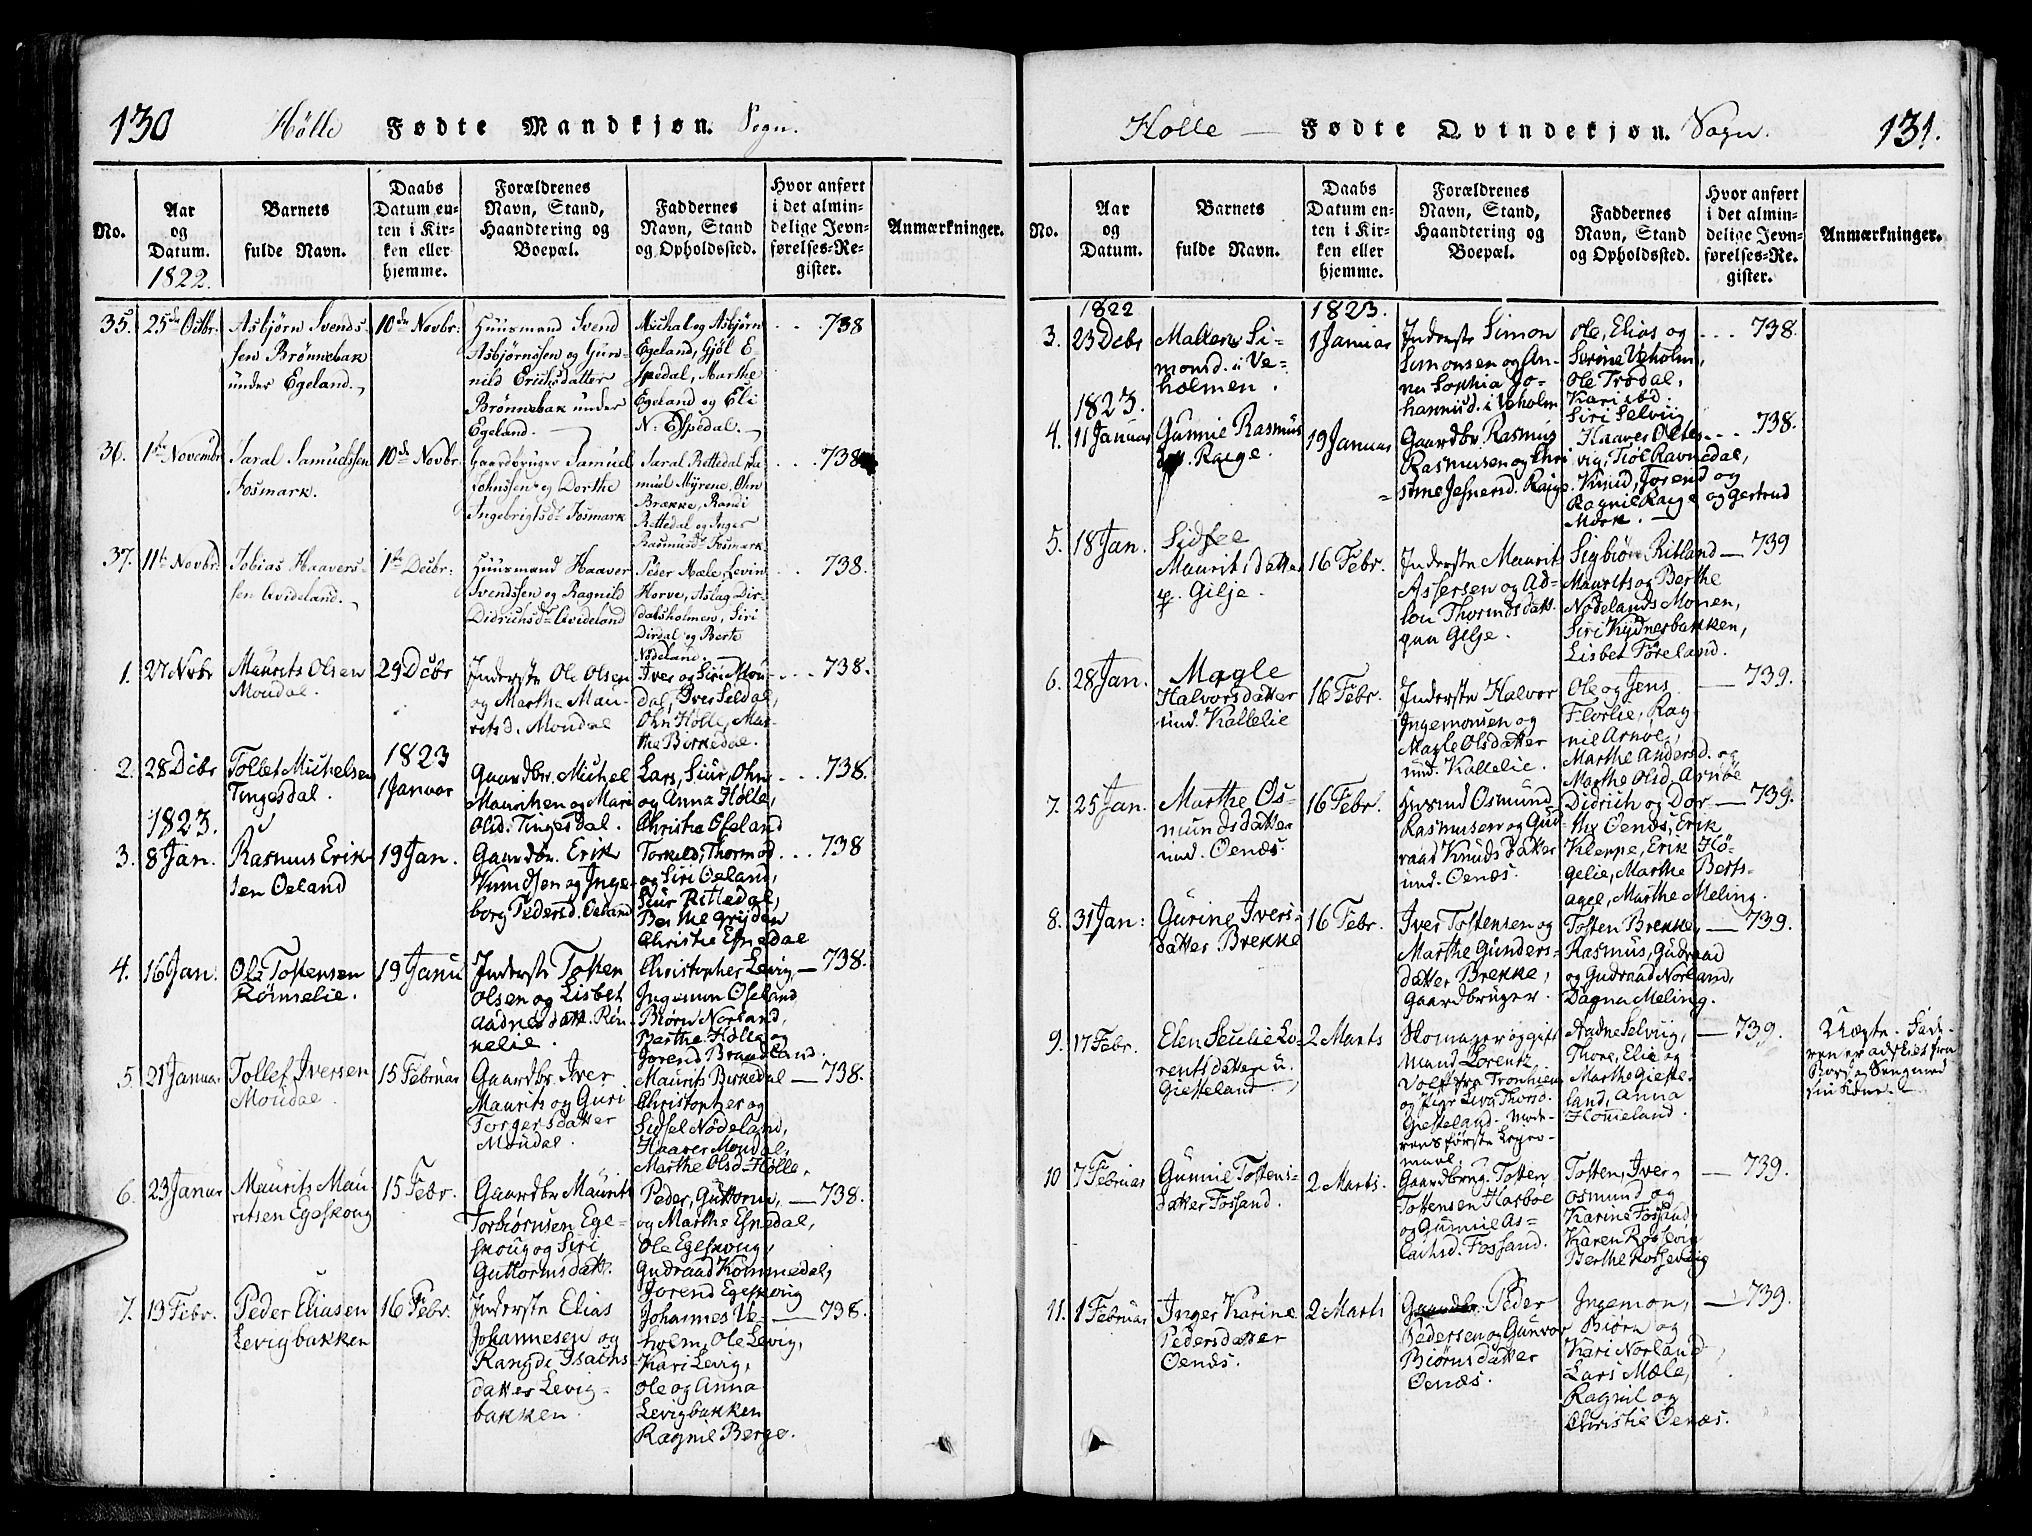 130 Hölle Fødte Mandkjøn. Sogn.
No.
Aar
og
Datum.
1822.
Barnets
fulde Navn.
Daabs
Datum en-
ten i Kir-
ken eller
hjemme.
Forældrenes
Navn, Stand,
Haandtering og
Boepæl.
Faddernes
Navn, Stand
og Opholdssted.
Hvor anført
i det almin-
delige Jevn-
førelses-Re-
gister.
Anmærkninger.
35. 25de Octbr.
Asbjørn Svends-
sen Brønnebak
under Egeland.
10de Novbr:
Huusmand Svend
Asbjørnssen og Gun-
nild Erichsdatter
Brønnebak under
Egeland.
Michal og Asbjørn
Egeland, Gjøl E-
spedal, Marthe
Egeland og Eli
N: Espedal.
738
36. 1ste Novembr
Saral Samuelssen
Fosmark.
10de Novbr.
Gaardbruger Samuel
Johnssen og Dorthe
Ingebrigtsdr Fosmark
Saral Rettedal, Sa-
muel Myrene, Ohn
Brække, Randi
Rettedal og Inger
Rasmusdr Fosmark.
738
37. 11te Novbr.
Tobias Haavers-
sen Evideland.
1ste Decbr:
Huusmand Haaver
Svendssen og Ragnild
Didrichsdr Evideland
Peder Mæle, Levin
Horve, Aslag Dir-
dalsholmen, Siri
Dirdal og Berte
Nødeland.
738.
1. 27 Nvbr
Maurits Olsen
Moudal.
29 Dcbr
Inderste Ole Olsen
og Marthe Mau-
ritsd. Moudal
Iver og Siri Mou-
dal, Iver Seldal,
Ohn Hölle, Mar-
the Birkedal.
738.
2. 28 Dcbr
Tollef Michelsen
Tingesdal.
1823
1 Januar
Gaardbr. Michel
Mauritsen og Mari
Olsd. Tingesdal.
Lars, Siur, Ohn
og Anna Hølle,
Christie Ofeland
738.
1823.
3. 8 Jan.
Rasmus Erik-
sen Oeland
19 Jan.
Gaardbr. Erik
Knudsen og Inge-
borg Pedersd. Oeland
Torkild, Thormod
og Siri Oeland,
Siur Rittedal,
Berthe Grijden
Christie Espedal
738
4. 16 Jan.
Ole Tostensen
Rönnelie.
19 Janu
Inderste Tosten
Olsen og Lisbet
Aadnesdatt. Rön-
nelie.
Christopher Levig,
Ingemun Ofeland
Biørn Norland,
Berthe Hölle og
Jorend Braadland.
738.
5. 21 Januar
Tollef Iversen
Moudal
15 Februar
Gaardbr. Iver
Maurits og Guri
Torgersdatter
Moudal.
Maurits Birkedal
Christopher og
Sidsel Nödeland,
Haaver Moudal,
Marthe Olsd. Hölle,
738.
6. 23 Januar
Maurits Mau-
ritsen Egeskoug
15 Febr.
Gaardbr Maurits
Torbiörnsen Ege-
skoug og Siri
Guttormsdatt.
Peder, Guttorm,
og Marthe Espedal,
Ole Egeskoug,
Gudraad Kommedal,
Jorend Egeskoug
738.
7. 13 Febr.
Peder Eliasen
Levigbakken
16 Febr.
Inderste Elias
Johannesen og
Rangdi Isachs-
datter Levig-
bakken.
Johannes Ve-
holm, Ole Levig,
Kari Levig,
Ole og Anna
Levigbakken
Ragnil Berge.
738.
Hölle — Fødte Qvindekjøn. Sogn. 131.
No.
Aar
og
Datum.
Barnets
fulde Navn.
Daabs
Datum en-
ten i Kir-
ken eller
hjemme.
Forældrenes
Navn, Stand,
Haandtering og
Boepæl.
Faddernes
Navn, Stand
og Opholdssted.
Hvor anført
i det almin-
delige Jevn-
førelses-Re-
gister.
Anmærkninger.
1822
3. 23 Dcbr
Malene Si-
monsd. i Ve-
holmen.
1823.
1 Januar
Inderste Simon
Simonsen og An-
na Sophia Jo-
hannisd. i Veholm
Ole, Elias og
Serine Veholm,
Ole Trodal,
Kari ibd.
Siri Selvig
738.
1823.
4. 11 Januar
Gunnie Rasmus
Raige.
19 Januar
Gaardbr. Rasmus
Rasmusen og Chri
stine Jesnersd. Raige
Haaver Oltes-
vig, Tiöl Ravnedal,
Knud, Jorend og
Ragnil Raige og Gertrud
Mork.
738.
5. 18 Jan.
Sidsee
Mauritsdatter
p. Gilje.
16 Febr.
Inderste Maurits
Assersen og Ad-
lou Thormodsdatt.
paa Gilje.
Sigbiörn Ritland
Maurits og Berthe
Nödelands Monen,
Siri Kydnesbakken,
Lisbet Föreland.
739
6. 28 Jan.
Magle
Halvorsdatter
und. Kallelie
16 Febr.
Inderste Halvor
Ingemonsen og
Magle Olsdatter
und. Kallelie.
Ole og Jens
Florlie, Rag
nil Arnöe,
Marthe Andersd. og
Marthe Olsd. Arnöe
739.
7. 25 Jan.
Marthe Os-
mundsdatter
und. Oenæs.
16 Febr.
Husmd Osmund
Rasmusen og Gud
raad Knudsdatter
und. Oenæs.
Didrich og Dor-
the Oenæs, Erik
Kleppe, Erik Hø-
gelie, Marthe Berts-
agel, Marthe Meling.
739.
8. 31 Jan:
Gurine Ivers-
datter Brekke
16 Febr.
Iver Tostensen og
Marthe Gunders-
datter Brekke,
Gaardbruger.
Tosten Brekke,
Rasmus, Gudraad
og Gudraad Norland,
Dagna Meling.
739.
9. 17 Febr.
Elen Seulie Lo-
rentsdatter u.
Giesseland
2 Marts
Skomager og gift
Mand Lorentz
Volf fra Tronhiem
og Pige Liva Thorsd.
Giesseland. Mode-
rens første Leger-
maal.
Aadne Selvig,
Thore, Elie og
Marthe Giesse-
land, Anna
Homeland.
739.
Uægte. Fade-
ren er adskilt fra
Bord og Seng med
sin Kone.
10 7 Februar
Gunnil Tostens-
datter Fossand.
2 Marts.
Gaardbrug. Tosten
Tostensen Harboe
og Gunnil As-
lachsd. Fossand.
Tosten, Iver,
Osmund og
Karine Fossand,
Karen Rossevig
Berthe Rossevig
739.
11. 1 Februar
Inger Karine
Pedersdatter
Oenæs.
2 Marts
Gaardbr. Peder
Pedersen og Gunvor
Biörnsdatter
Oenæs.
Ingemon,
Biörn og
Kari Norland,
Lars Mæle,
Ragnil og
Christie Oenæs.
739.